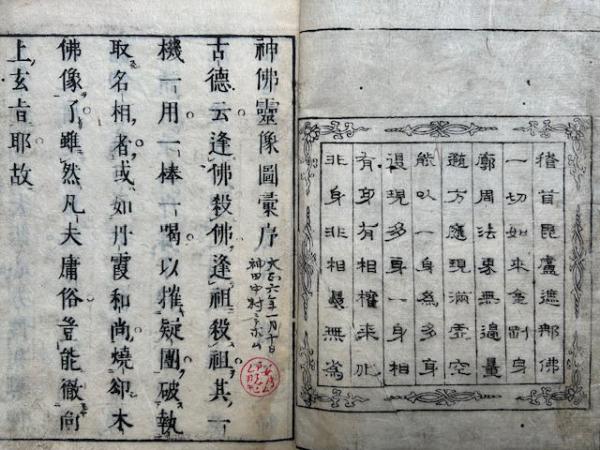 稽首毘盧遮那佛
一切如來金剛身
廓周法界無邊量
方應現滿虛空
能以一身為多身
還現多身一身相
有身有相權來化
非身非相無為
神佛靈像圖彙序
大正六年一月十日
神田中村ニ求ム
古德云逢佛殺佛逢祖殺祖其一
機一用一棒一喝以摧疑團破執
取名相者或如丹霞和尚燒却木
佛像了雖然凡夫庸俗豈能徹向
上玄旨耶故